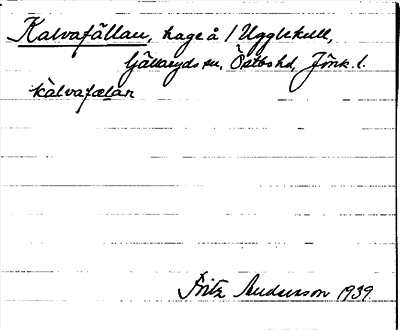 Kalvafällan, hage å 1 Ugglekull,
Gällaryds sn, Östbo hd, Jönk. l.
kàlvafælan
Fritz Anderson 1939.